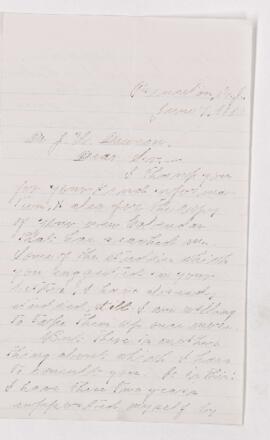 Princeton, N.J.
June 7, 188
Dr. J. W. Dawson.
Dear Sir:—
I thank you
for your kind informa-
tion, & also for the copy
of your new Calendar
that has reached me.
Some of the studies which
you suggested in your
letter I have already
studied, still I am willing
to take them up once more.
But there is another
thing about which I have
to consult you. It is this:
I have these two years
supported myself by